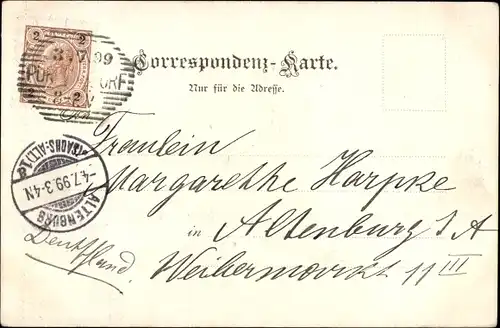 2 2
3/7.99
2 2
Correspondenz-Karte.
Nur für die Adresse.
ALTENBURG
(SACHS.-ALT.) 1
-4.7.99.3-4N.
Fräulein
Margarethe Harpke
in Altenburg S/A
Weibermarkt 11 III
Deutschland.